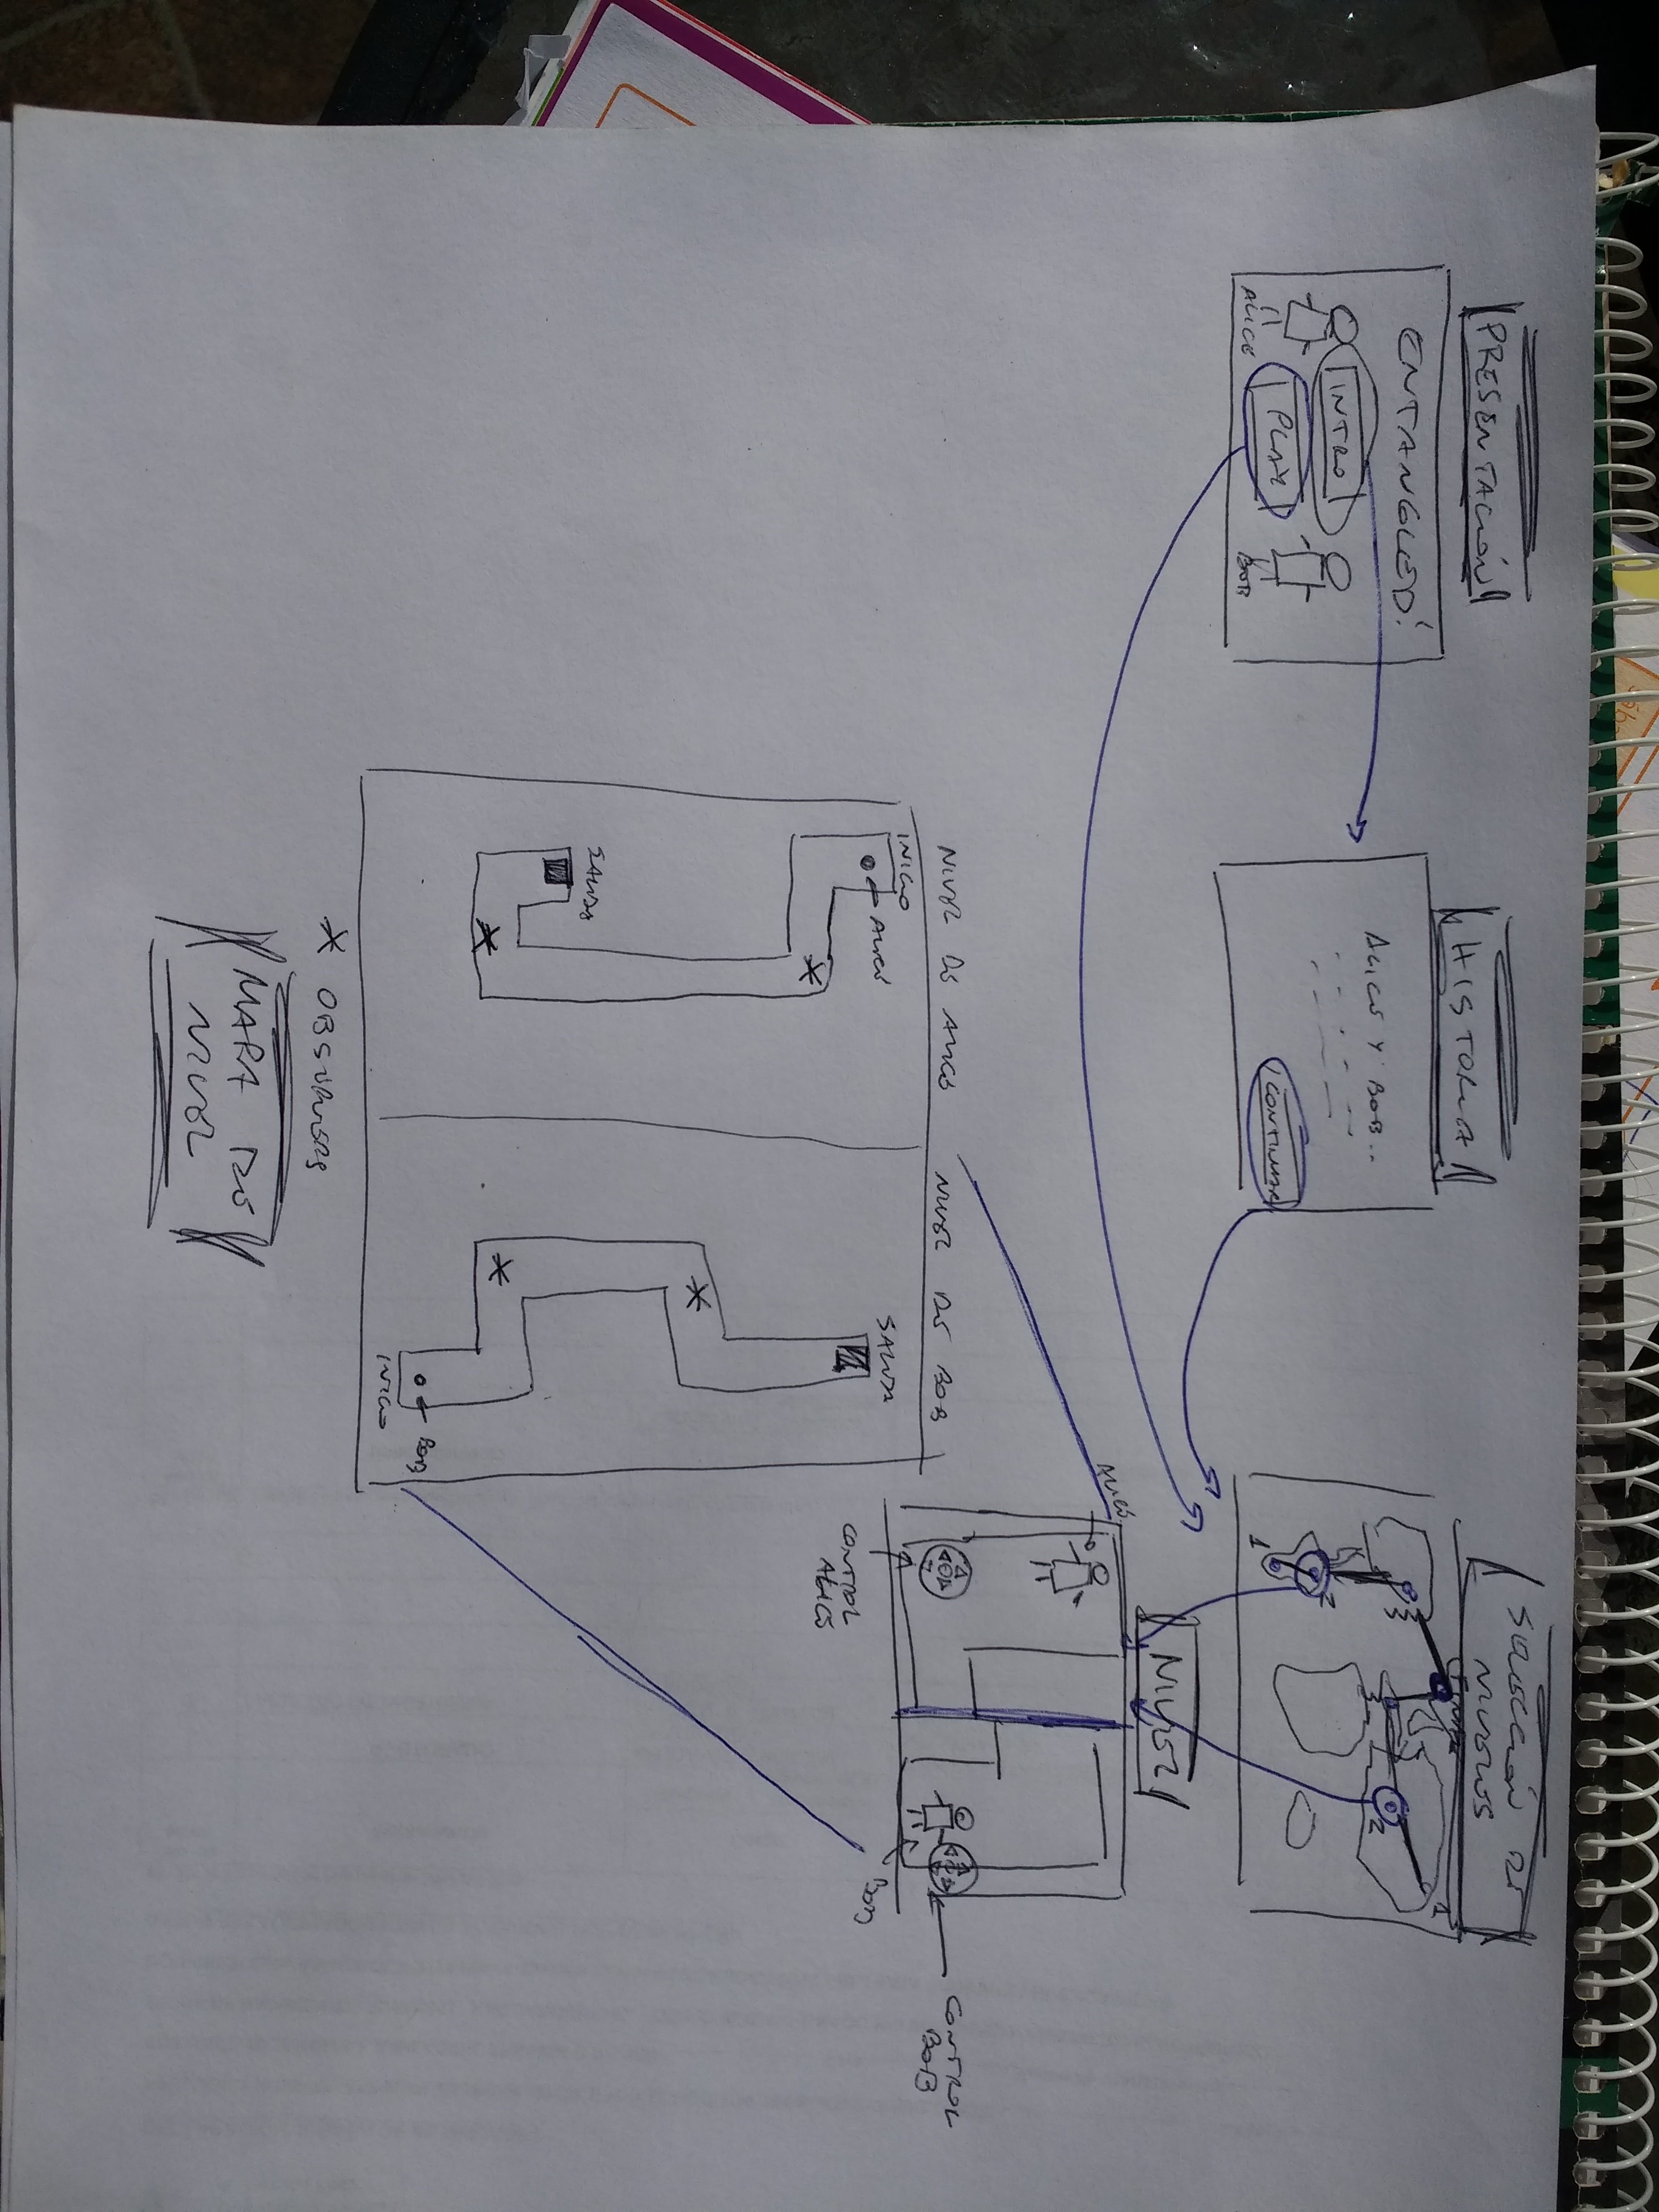 PRESENTACIÓN
ENTANGLED!
INTRO
PLAY
ALICE
BOB
HISTORIA
ALICE Y BOB...
CONTINUAR
SELECCIÓN DE
NIVELES
FINAL
1
2
3
3
2
1
NIVEL
ALICE
CONTROL
BOB
BOB
CONTROL
ALICE
NIVEL DE ALICE
NIVEL DE BOB
INICIO
ALICE
SALIDA
SALIDA
BOB
INICIO
OBSERVERS
MAPA DE
NIVEL